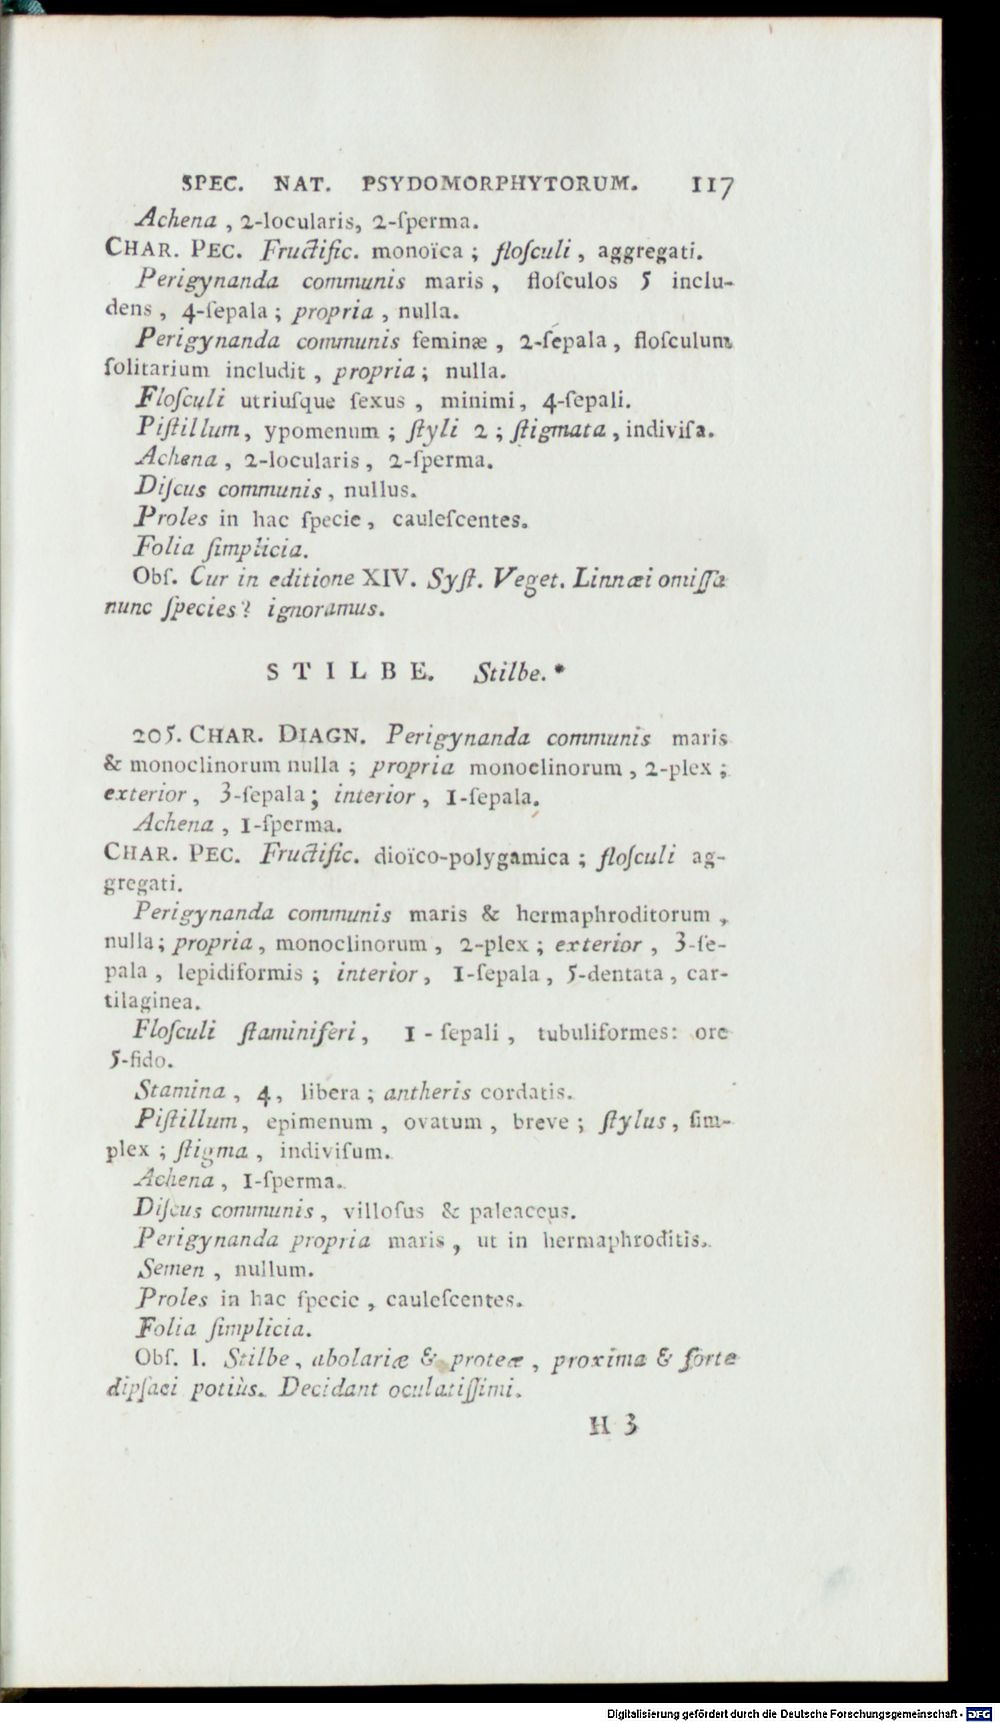 SPEC. NAT. PSYDOMORPHYTORUM. 117
Achena , 2-locularis, 2-ſperma.
CHAR. PEC. Fructific. monoïca ; floſculi , aggregati.
Perigynanda communis maris , floſculos 5 inclu-
dens , 4-ſepala ; propria , nulla.
Perigynanda communis feminæ , 2-ſepala , floſculum
ſolitarium includit , propria ; nulla.
Floſculi utriuſque ſexus , minimi, 4-ſepali.
Piſtillum, ypomenum ; ſtyli 2 ; ſtigmata , indiviſa.
Achena , 2-locularis , 2-ſperma.
Diſcus communis , nullus.
Proles in hac ſpecie , cauleſcentes.
Folia ſimplicia.
Obſ. Cur in editione XIV. Syſt. Veget. Linnæi omiſſa
nunc ſpecies ? ignoramus.
STILBE. Stilbe. *
205. CHAR. DIAGN. Perigynanda communis maris
& monoclinorum nulla ; propria monoclinorum , 2-plex ;
exterior , 3-ſepala ; interior , 1-ſepala.
Achena , 1-ſperma.
CHAR. PEC. Fructific. dioïco-polygamica ; floſculi ag-
gregati.
Perigynanda communis maris & hermaphroditorum ,
nulla ; propria , monoclinorum , 2-plex ; exterior , 3-ſe-
pala , lepidiformis ; interior , 1-ſepala , 5-dentata , car-
tilaginea.
Floſculi ſtaminiferi , 1 - ſepali , tubuliformes: ore
5-fido.
Stamina , 4 , libera ; antheris cordatis.
Piſtillum, epimenum , ovatum , breve ; ſtylus , ſim-
plex ; ſtigma , indiviſum.
Achena , 1-ſperma.
Diſcus communis , villoſus & paleaceus.
Perigynanda propria maris , ut in hermaphroditis.
Semen , nullum.
Proles in hac ſpecie , cauleſcentes.
Folia ſimplicia.
Obſ. I. Stilbe , abolariæ & proteæ , proxima & forte
dipſaci potiùs. Decidant oculatiſſimi.
H 3
Digitalisierung gefördert durch die Deutsche Forschungsgemeinschaft - DFG